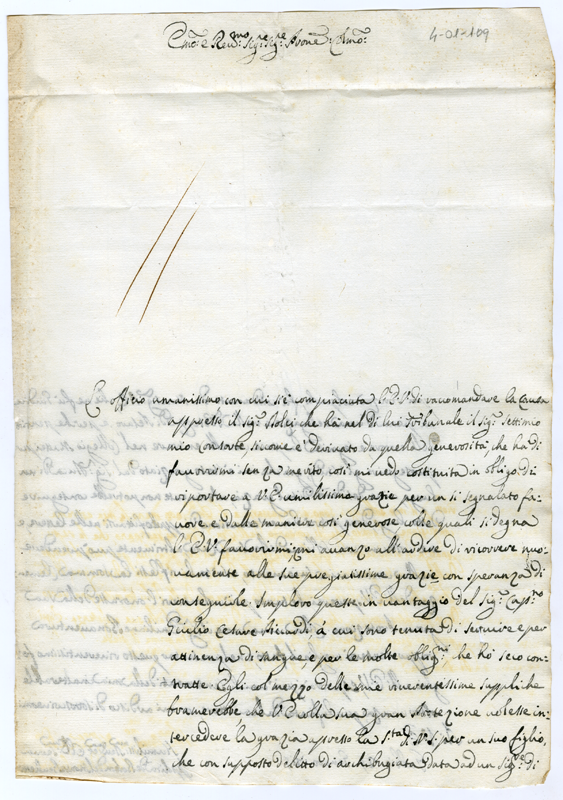 4-013109
Em.o e Rev.mo Sig.re Sig.re Prone Colmo
L'officio umanissimo con cui si è compiaciuta V.E.V. di raccomandare la Causa
appresso il Sig.r che ha nel di lui Tribunale il Sig.r Settimio
mio Consorte, sicome è derivato da quella generosità, che ha di
favorirmi senza merito, così mi vedo costituita in obligo di
riportare a V.E. umilissime grazie per un sì segnalato fa-
vore, e dalle maniere così generose colle quali si degna
V.E.V. favorirmi, mi avanzo all'ardire di ricorrere nuo-
vamente alle sue pregiatissime grazie con speranza di
conseguirle. Imploro queste in vantaggio del Sig.r Cap.no
Giulio Cesare Ricardi à cui sono tenuta di servire e per
attinenza di sangue, e per le molte oblig.ni che hò seco con-
tratte. Egli col mezzo delle mie riverentissime suppliche
bramerebbe che V.E. colla sua gran Protezione volesse in-
tercedere la grazia appresso la S.tà di N.S. per un suo figlio,
che con supposto delitto di archibugiata data ad un Sig.re di